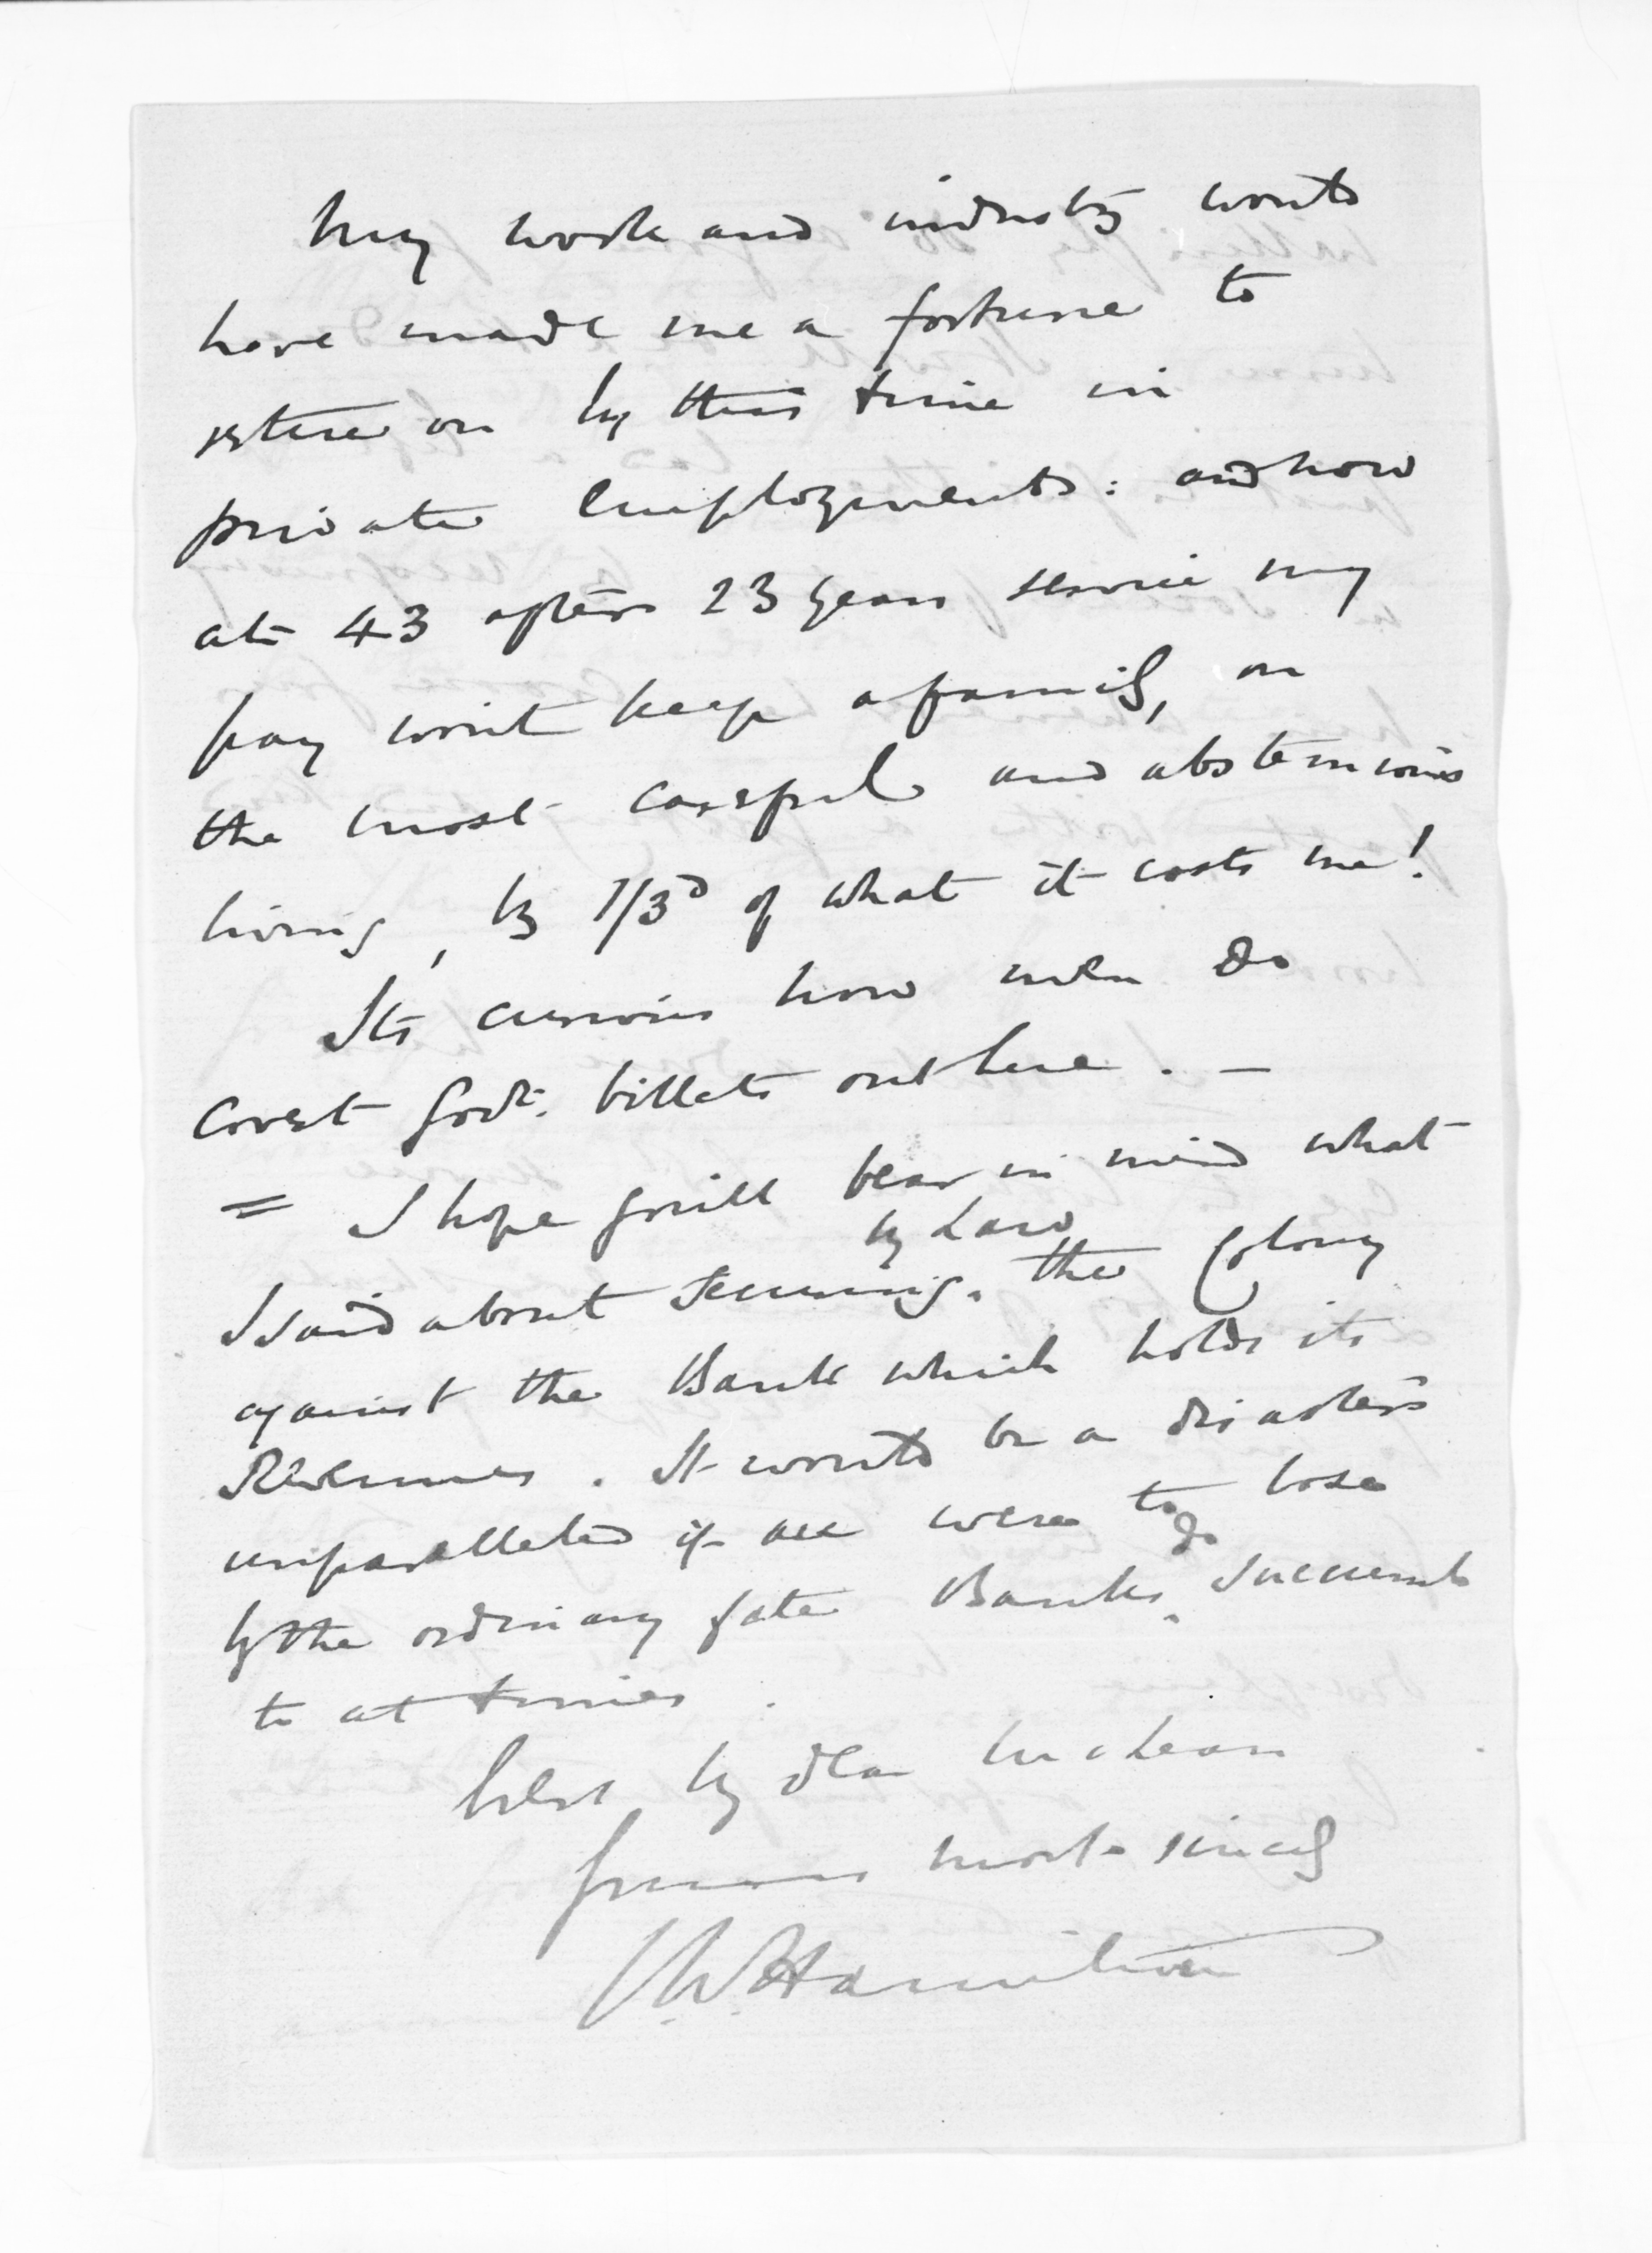 My work and industry would
have made me a fortune to
retire on by this time in
private employments: and now
at 43 after 23 years service my
pay won't keep a family, on
the most careful and abstemious
living, by 1/3d of what it costs me!
Its curious how men do
covet Govt. billets out here. —
= I hope you'll bear in mind what
by Law
I said about securing. the Colony
against the Bank which holds its
Revenues. It would be a disaster
unparalleled if all were to lose
do
by the ordinary fate Banks. succumb
to at times.
Believe my dear McLean
yours most sincely
W. Hamilton